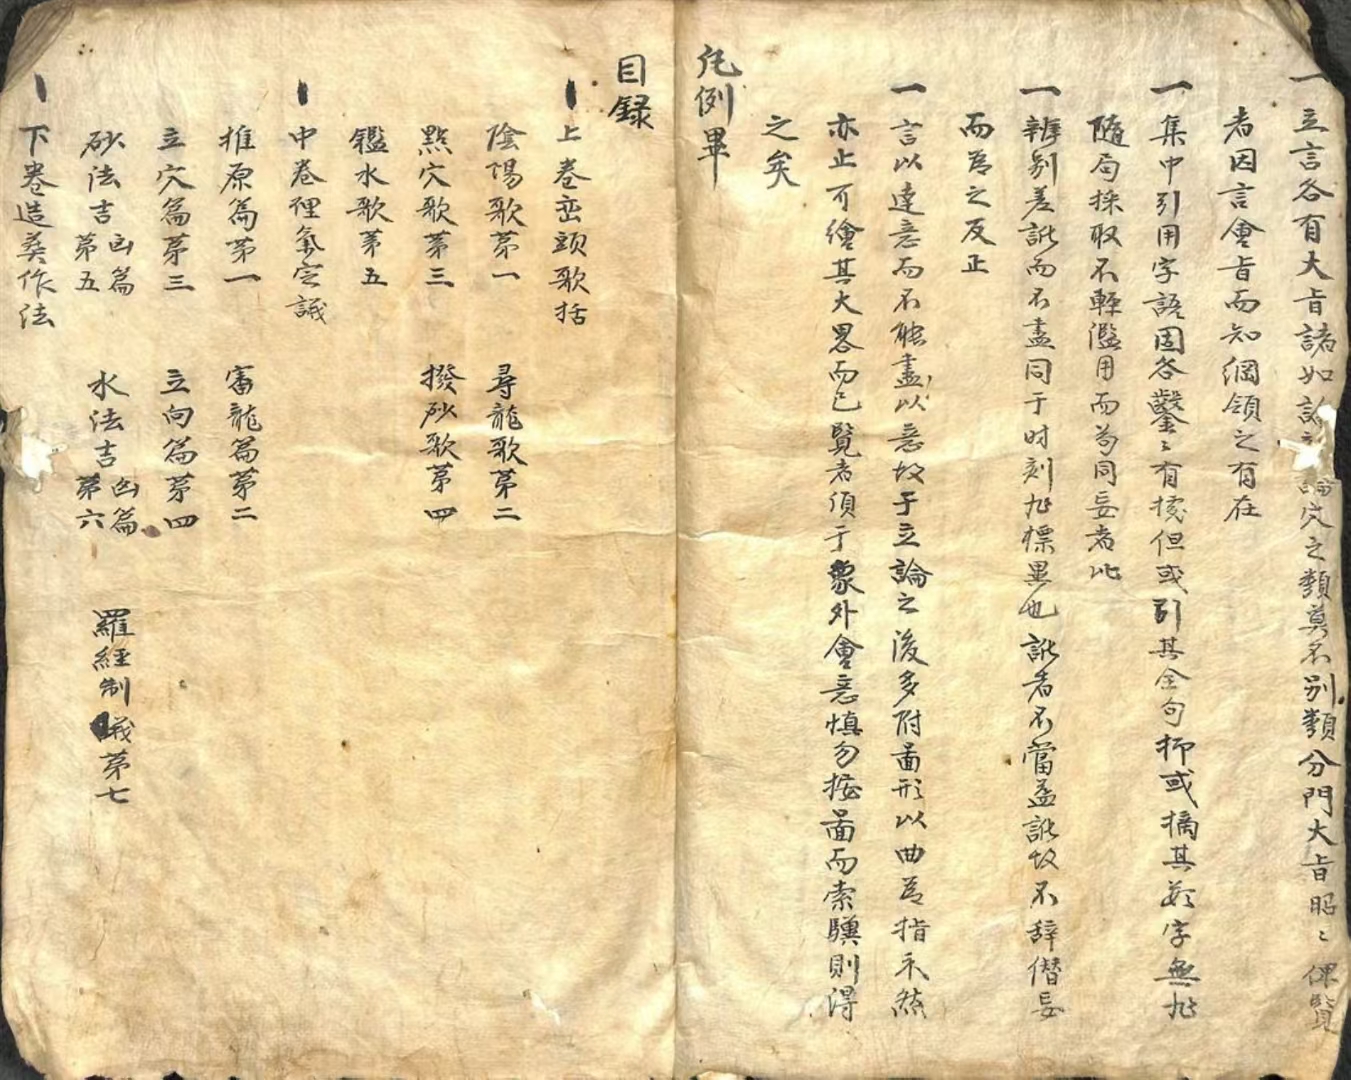 一立言各有大旨諸如論穴之類莫不別類分門大旨昭〻俾覽
者因言會旨而知綱領之有在
一集中引用字語固各鑿〻有据但或引其全句抑或摘其数字無非
隨局採取不輕濫用而為同妄者比
一辨别差訛而不盡同于时刻非標異也訛者不當益訛故不辞僭妄
而為之反正
一言以達意而不能盡以意故于立論之後多附畵形以曲為指示然
亦止可繪其大畧而已覽者須于象外會意慎勿按畵而索驥則得
之矣
凡例畢
目録
上卷巒頭歌括
陰陽歌苐一 尋龍歌苐二
點穴歌苐三 撥砂歌苐四
鑑水歌苐五
中卷理氣宝誠
推原篇苐一 審龍篇苐二
立穴篇苐三 立向篇苐四
砂法吉凶篇第五 水法吉凶篇第六 羅經制議苐七
下卷造葬作法